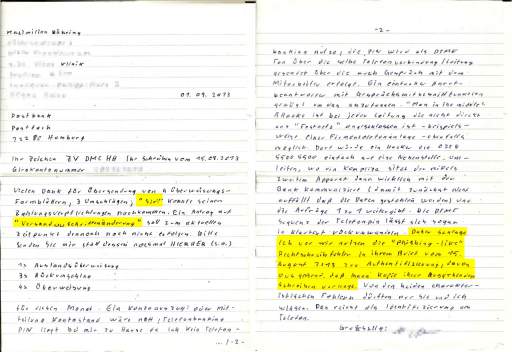 Maximilian Bähring
Klinik
01.09.2013
Postbank
Postfach
Hamburg
Ihr Zeichen ZV DMC HB Ihr Schreiben vom 15.08.2013
Girokontonummer
Vielen Dank für Übersendung von 4 Überweisungs-
Formblättern, 3 Umschlägen, "sie" konnte seinen
Zahlungsverpflichtungen nachkommen. Ein Antrag auf
soll zum aktuellen
Zeitpunkt dennoch noch nicht erfolgen. Bitte
senden Sie mir stattdessen nochmal HIERHER (s.o.)
1x Auslandsüberweisung
3x Rückumschläge
4x Überweisung
für diesen Monat. Ein Kontoauszug oder Mit-
teilung Kontostand wäre nett, Telefonbanking
PIN liegt bei mir zu Hause da ich kein Telefon-
...1-2-
-2-
banking nutze, die PIN wird als DTMF
Ton über die selbe Telefonverbindung/leitung
gesendet über die auch Gespräch mit dem
Mitarbeiter erfolgt. Ein einfacher Anruf-
beantworter mit Gesprächsmitschneidfunktion
genügt um das abzufangen. "Man in the middle"
Attacks ist bei jeder Leitung die nicht direkt
am "Festnetz" angeschlossen ist - beispiels-
weise einer Firmentelefonanlage - ebenfalls
möglich. Dort würde ein Hacker die 0180
5500 5500 einfach auf eine Nebenstelle um-
leiten, wo ein Komplize sitzt der mittels
zweitem Apparat dann wirklich mit der
Bank kommuniziert (damit zunächst nicht
auffällt daß die Daten gestohlen werden) und
die Aufträge 1:1 weitergibt. Die DTMF
Sequenz der Telefonpin lässt sich sogar
in Klartext rückumwandeln. Daher schlage
ich vor wir nutzen die "Phishing-like"
Rechtschreibfehler in ihrem Brief vom 15.
August 2013 zur Authentifizierung, davon
ausgehend, daß ihnen Kopie ihrer ausgehenden
Schreiben vorliegt. Von den beiden charakter-
istischen Fehlern dürften nur Sie und ich
wissen. Das reicht als Identifizierung am
Telefon.